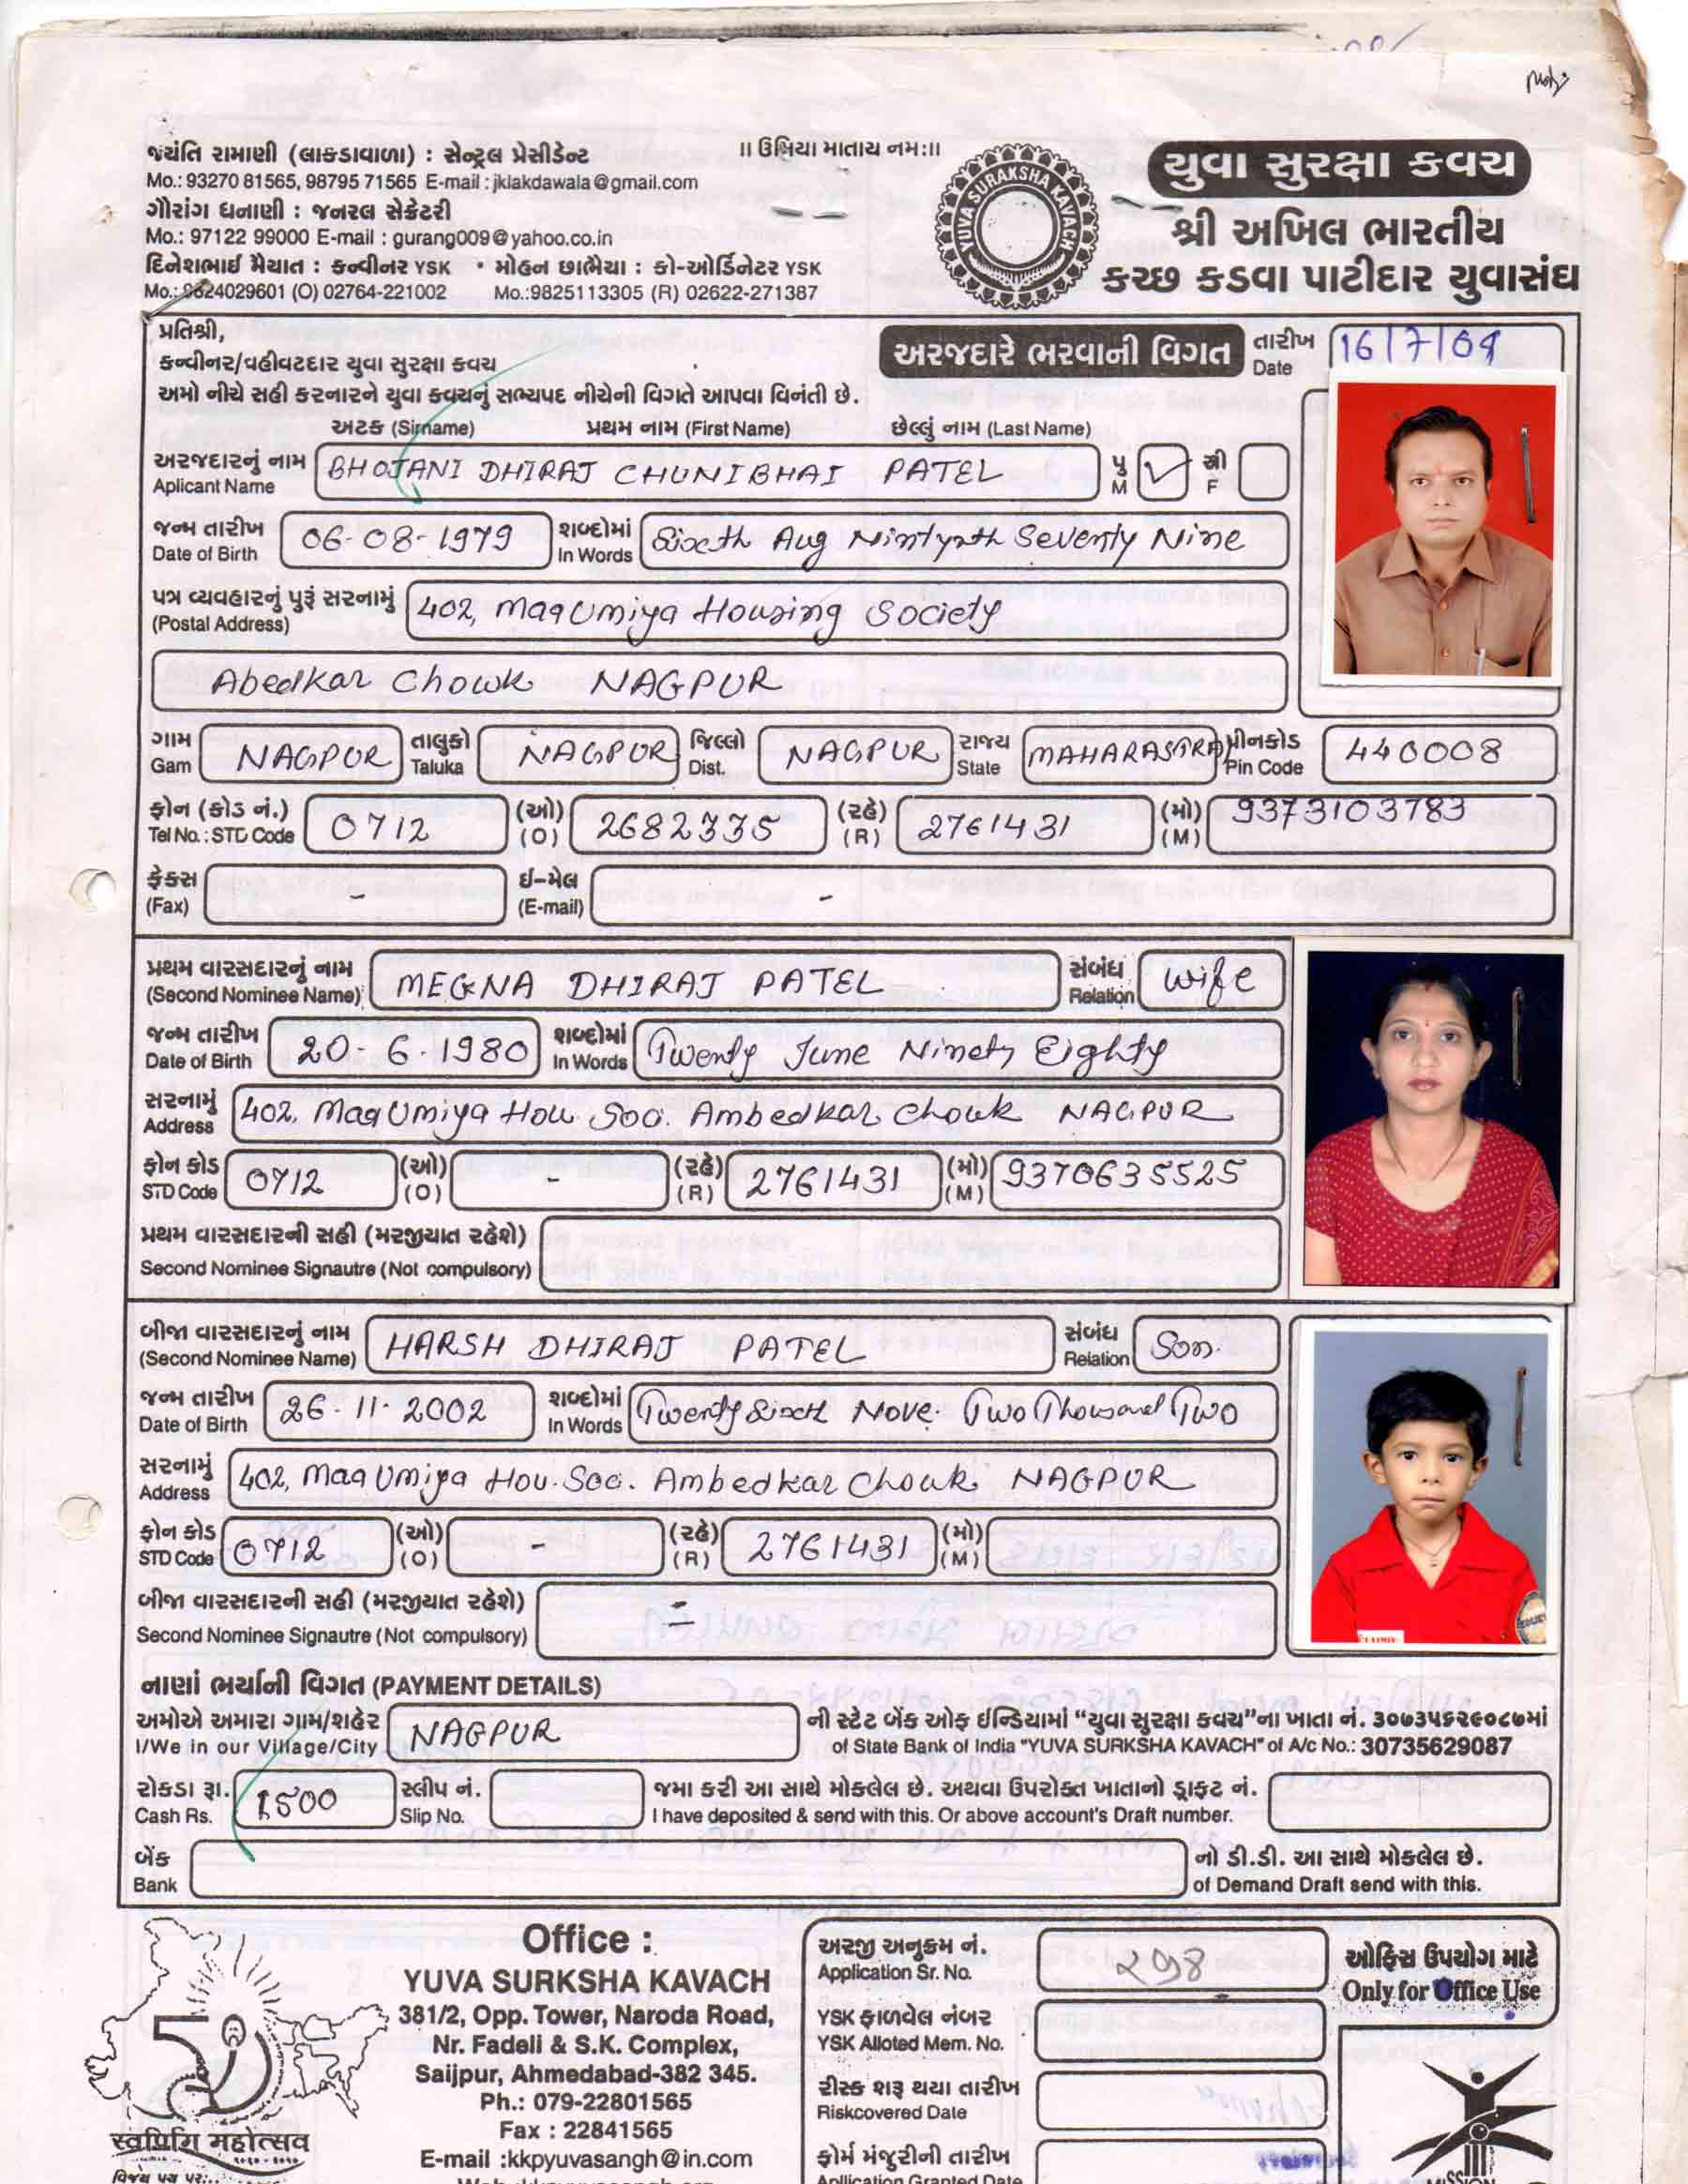 જયંતિ રામાણી (લાકડાવાળા) : સેન્ટ્રલ પ્રેસીડેન્ટ
Mo.: 93270 81565, 98795 71565 E-mail : jklakdawala@gmail.com
ગૌરાંગ ધનાણી : જનરલ સેક્રેટરી
Mo.: 97122 99000 E-mail : gurang009@yahoo.co.in
દિનેશભાઈ મૈયાત : કન્વીનર YSK • મોહન છાભૈયા : કો-ઓર્ડિનેટર YSK
Mo.: 9824029601 (O) 02764-221002 Mo.:9825113305 (R) 02622-271387
।। ઉમિયા માતાય નમ:।।
YUVA SURAKSHA KAVACH
યુવા સુરક્ષા કવચ
શ્રી અખિલ ભારતીય
કચ્છ કડવા પાટીદાર યુવાસંઘ
પ્રતિશ્રી,
કન્વીનર/વહીવટદાર યુવા સુરક્ષા કવચ
અરજદારે ભરવાની વિગત તારીખ Date 16/7/09
અમો નીચે સહી કરનારને યુવા કવચનું સભ્યપદ નીચેની વિગતે આપવા વિનંતી છે.
અટક (Sirname) પ્રથમ નામ (First Name) છેલ્લું નામ (Last Name)
અરજદારનું નામ Aplicant Name BHOJANI DHIRAJ CHUNIBHAI PATEL પુ M ✓ સ્રી F
જન્મ તારીખ Date of Birth 06-08-1979 શબ્દોમાં In Words Sixth Aug Nintynth Seventy Nine
પત્ર વ્યવહારનું પુરૂં સરનામું (Postal Address) 402, Maa Umiya Housing Society
Abedkar Chowk NAGPUR
ગામ Gam NAGPUR તાલુકો Taluka NAGPUR જિલ્લો Dist. NAGPUR રાજ્ય State MAHARASTRA પીનકોડ Pin Code 440008
ફોન (કોડ નં.) Tel No.: STD Code 0712 (ઓ) (O) 2682335 (રહે) (R) 2761431 (મો) (M) 9373103783
ફેક્સ (Fax) - ઈ-મેલ (E-mail) -
પ્રથમ વારસદારનું નામ (Second Nominee Name) MEGNA DHIRAJ PATEL સંબંધ Relation wife
જન્મ તારીખ Date of Birth 20-6-1980 શબ્દોમાં In Words Twenty June Ninety Eighty
સરનામું Address 402, Maa Umiya Hou. Soc. Ambedkar Chowk NAGPUR
ફોન કોડ STD Code 0712 (ઓ) (O) - (રહે) (R) 2761431 (મો) (M) 9370635525
પ્રથમ વારસદારની સહી (મરજીયાત રહેશે)
Second Nominee Signautre (Not compulsory)
બીજા વારસદારનું નામ (Second Nominee Name) HARSH DHIRAJ PATEL સંબંધ Relation Son.
જન્મ તારીખ Date of Birth 26-11-2002 શબ્દોમાં In Words Twenty Sixth Nove. Two Thousand Two
સરનામું Address 402, Maa Umiya Hou. Soc. Ambedkar Chowk NAGPUR
ફોન કોડ STD Code 0712 (ઓ) (O) - (રહે) (R) 2761431 (મો) (M)
બીજા વારસદારની સહી (મરજીયાત રહેશે)
Second Nominee Signautre (Not compulsory)
નાણાં ભર્યાની વિગત (PAYMENT DETAILS)
અમોએ અમારા ગામ/શહેર NAGPUR ની સ્ટેટ બેંક ઓફ ઈન્ડિયામાં "યુવા સુરક્ષા કવચ"ના ખાતા નં. ૩૦૭૩૫૬૨૯૦૮૭માં
I/We in our Village/City of State Bank of India "YUVA SURKSHA KAVACH" of A/c No.: 30735629087
રોકડા રૂા. 1500 સ્લીપ નં. જમા કરી આ સાથે મોકલેલ છે. અથવા ઉપરોક્ત ખાતાનો ડ્રાફ્ટ નં.
Cash Rs. Slip No. I have deposited & send with this. Or above account's Draft number.
બેંક નો ડી.ડી. આ સાથે મોકલેલ છે.
Bank of Demand Draft send with this.
સ્વર્ણિમ મહોત્સવ
Office :
YUVA SURKSHA KAVACH
381/2, Opp. Tower, Naroda Road,
Nr. Fadeli & S.K. Complex,
Saijpur, Ahmedabad-382 345.
Ph.: 079-22801565
Fax : 22841565
E-mail :kkpyuvasangh@in.com
અરજી અનુક્રમ નં. ૨૭૪
Application Sr. No.
ઓફિસ ઉપયોગ માટે
Only for Office Use
YSK ફાળવેલ નંબર
YSK Alloted Mem. No.
રીસ્ક શરૂ થયા તારીખ
Riskcovered Date
ફોર્મ મંજુરીની તારીખ
Apllication Granted Date
MISSION